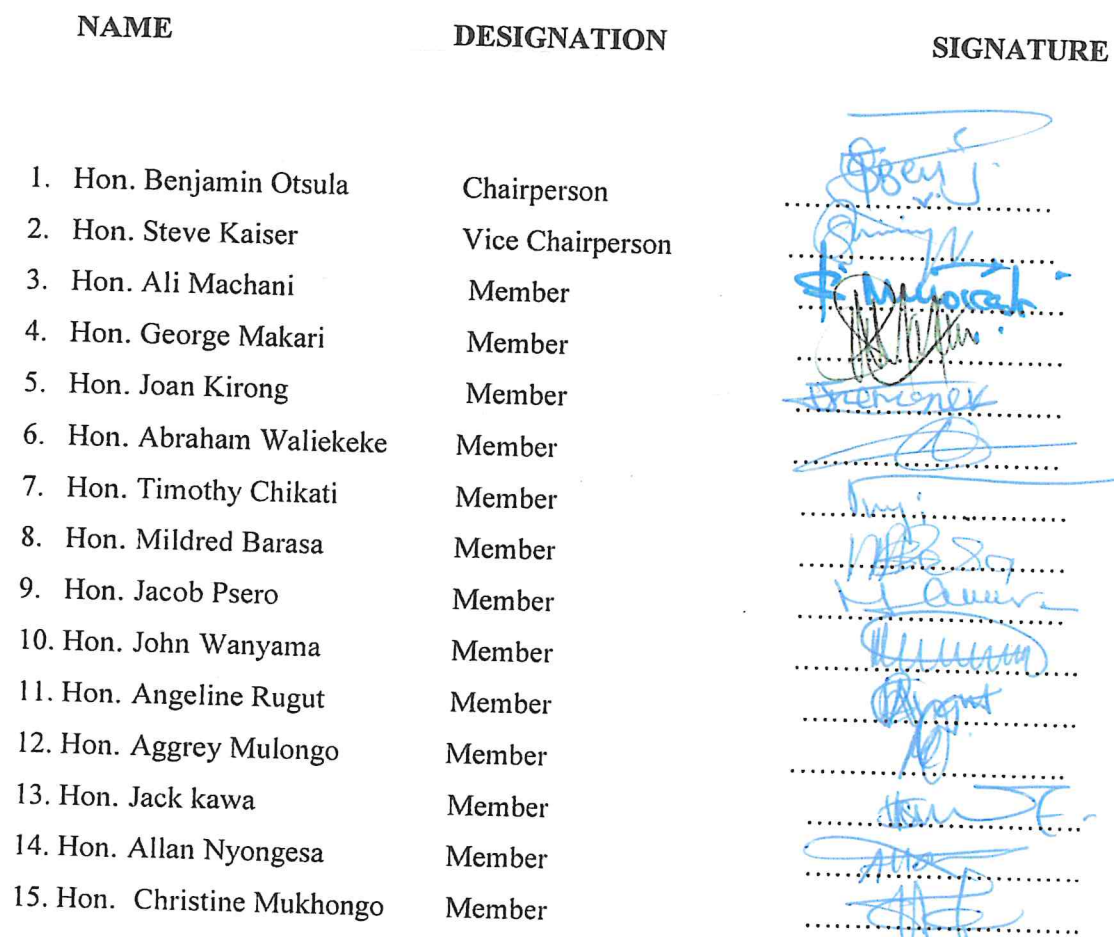 NAME DESIGNATION SIGNATURE
1. Hon. Benjamin Otsula Chairperson ..............................
2. Hon. Steve Kaiser Vice Chairperson ..............................
3. Hon. Ali Machani Member ..............................
4. Hon. George Makari Member ..............................
5. Hon. Joan Kirong Member ..............................
6. Hon. Abraham Waliekeke Member ..............................
7. Hon. Timothy Chikati Member ..............................
8. Hon. Mildred Barasa Member ..............................
9. Hon. Jacob Psero Member ..............................
10. Hon. John Wanyama Member ..............................
11. Hon. Angeline Rugut Member ..............................
12. Hon. Aggrey Mulongo Member ..............................
13. Hon. Jack kawa Member ..............................
14. Hon. Allan Nyongesa Member ..............................
15. Hon. Christine Mukhongo Member ..............................